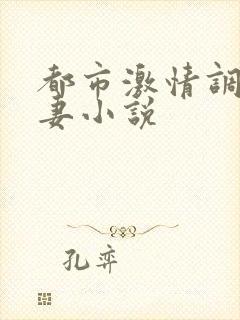 都市激情調
妻小説
孔弈